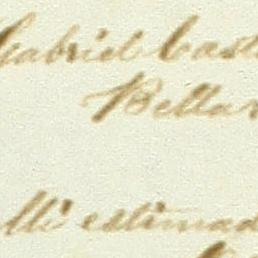 Gabriel Cast
Bella
Mi estimad